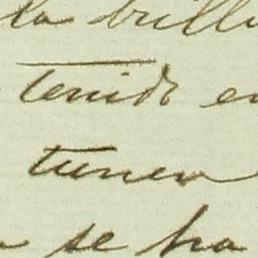 la brill
tenido en
tienen
se ha